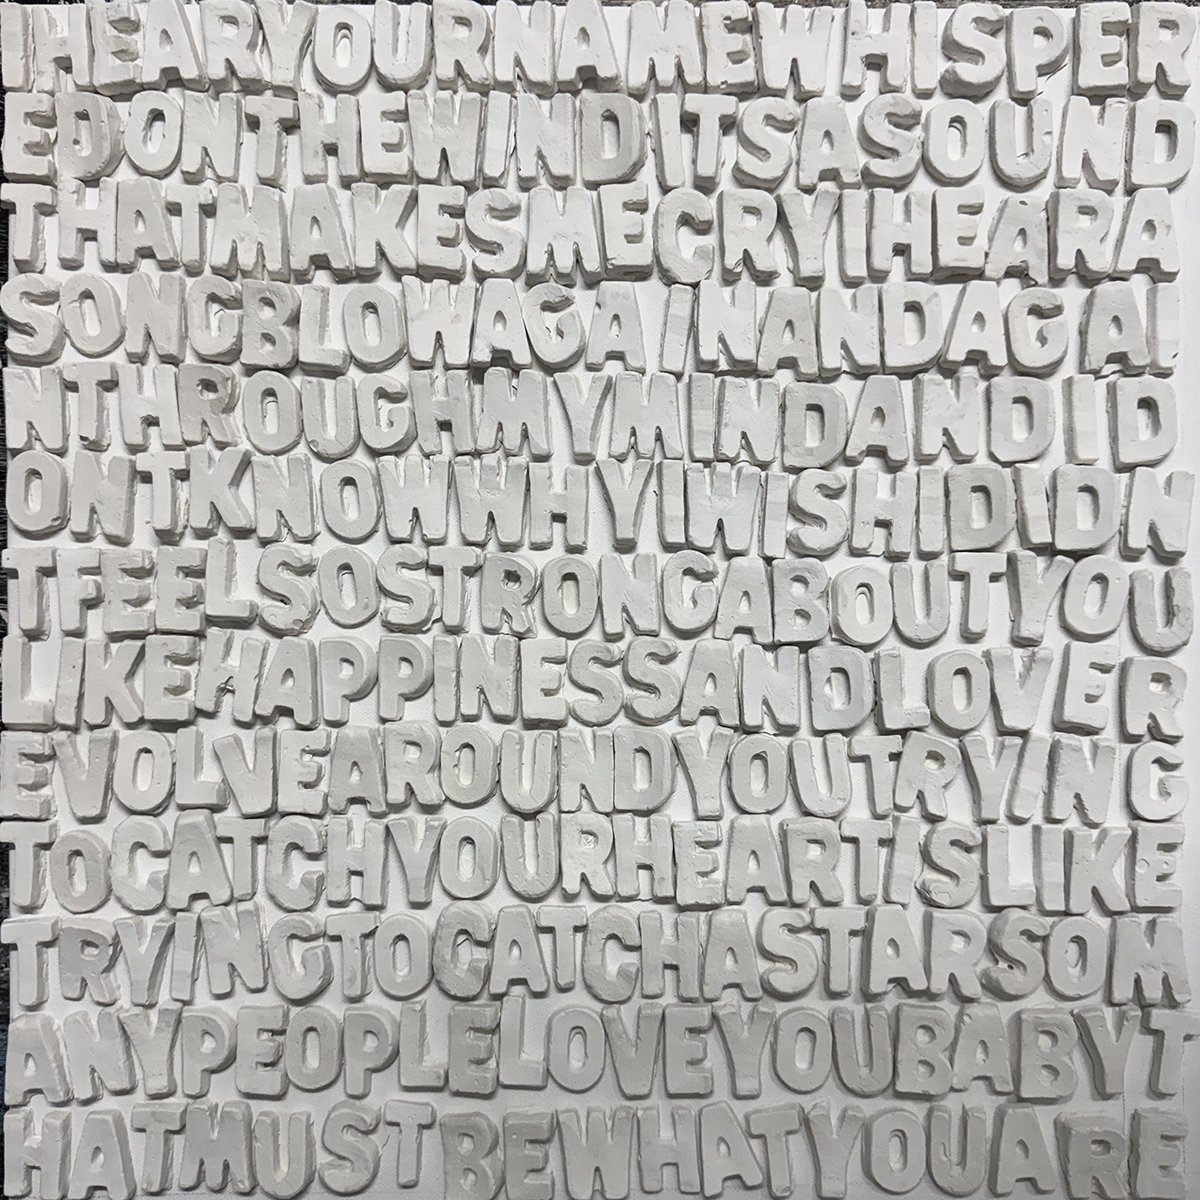 IHEARYOURNAMEWHISPER
EDONTHEWINDITSASOUND
THATMAKESMECRYIHEARA
SONGBLOWAGAINANDAGAI
NTHROUGHMYMINDANDID
ONTKNOWWHYIWISHIDIDN
TFEELSOSTRONGABOUTYOU
LIKEHAPPINESSANDLOVER
EVOLVEAROUNDYOUTRYING
TOCATCHYOURHEARTISLIKE
TRYINGTOCATCHASTARSOM
ANYPEOPLELOVEYOUBABYT
HATMUSTBEWHATYOUARE